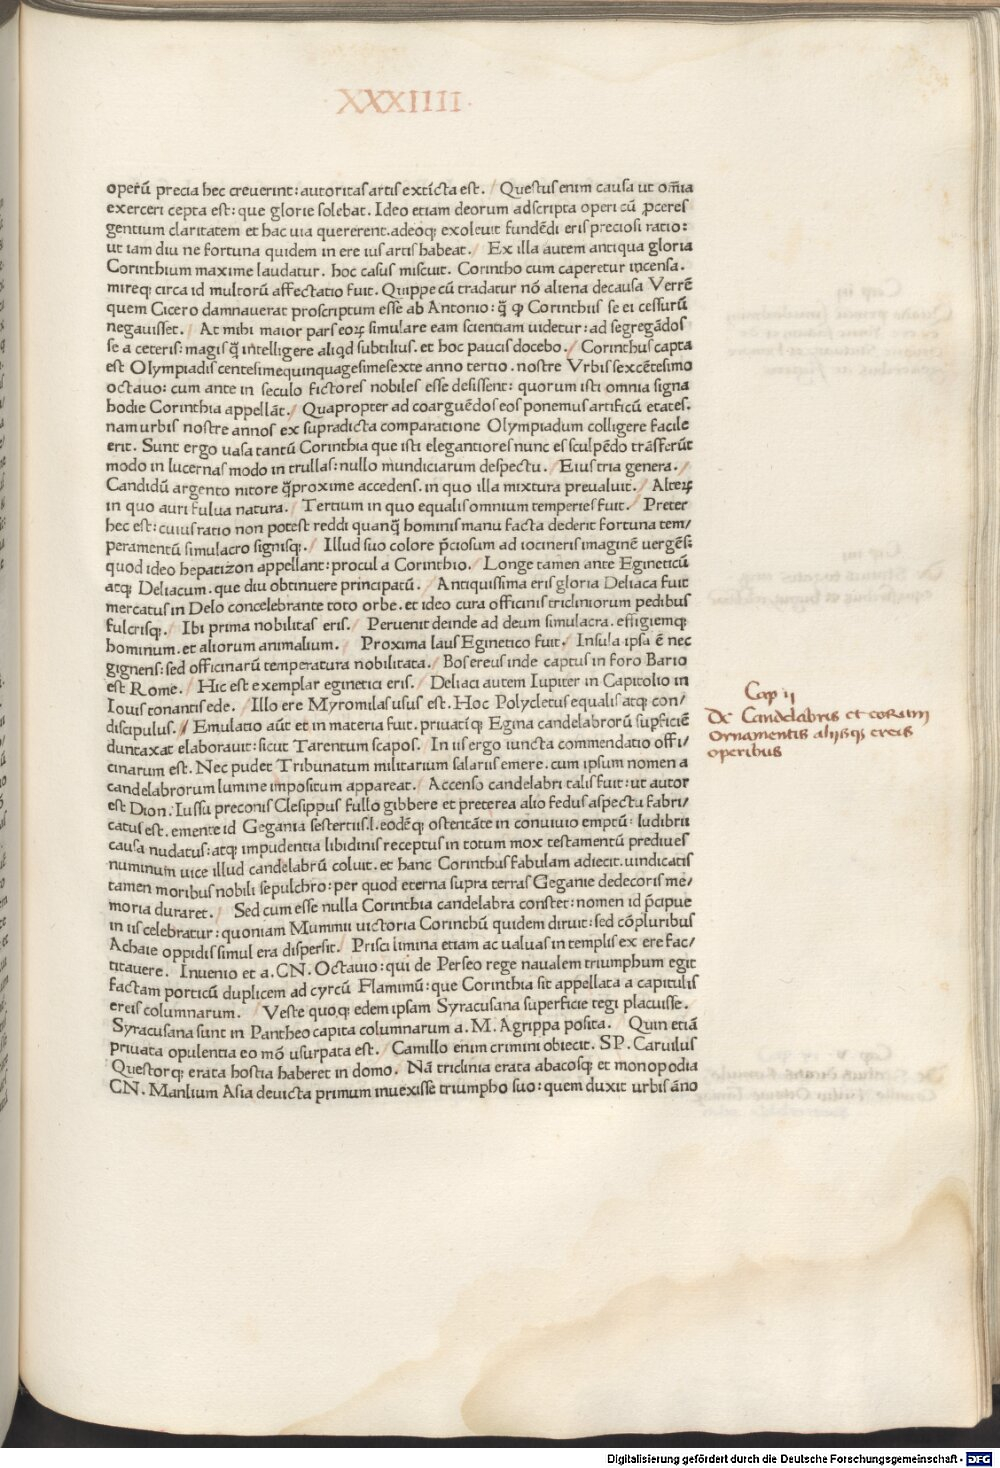 ·XXXIIII·
operū precia hec creuerint: autoritas artis extīcta est. / Questus enim causa ut om̄ia
exerceri cepta est: que glorie solebat. Ideo etiam deorum adscripta operi cū ꝓceres
gentium claritatem et hac uia quererent. adeoqꝫ exoleuit fundēdi eris preciosi ratio:
ut iam diu ne fortuna quidem in ere ius artis habeat. / Ex illa autem antiqua gloria
Corinthium maxime laudatur. hoc casus miscuit. Corintho cum caperetur incensa.
mireqꝫ circa id multorū affectatio fuit. Quippe cū tradatur nō aliena decausa Verrē
quem Cicero damnauerat proscriptum esse ab Antonio: q̄ ꝙ Corinthiis se ei cessurū
negauisset. / At mihi maior pars eoꝝ simulare eam scientiam uidetur: ad segregādos
se a ceteris: magis q̄ intelligere aliqd subtilius. et hoc paucis docebo. / Corinthus capta
est Olympiadis centesimequinquagesimesexte anno tertio. nostre Vrbis sexcētesimo
octauo: cum ante in seculo fictores nobiles esse desissent: quorum isti omnia signa
hodie Corinthia appellāt. / Quapropter ad coarguēdos eos ponemus artificū etates.
nam urbis nostre annos ex supradicta comparatione Olympiadum colligere facile
erit. Sunt ergo uasa tantū Corinthia que isti elegantiores nunc es sculpēdo trāsferūt
modo in lucernas modo in trullas: nullo mundiciarum despectu. / Eius tria genera. /
Candidū argento nitore q̄proxime accedens. in quo illa mixtura preualuit. / Alteꝝ
in quo auri fulua natura. / Tertium in quo equalis omnium temperies fuit. / Preter
hec est: cuius ratio non potest reddi quanq̄ hominis manu facta dederit fortuna tem/
peramentū simulacro signisqꝫ. / Illud suo colore p̄ciosum ad iocineris imaginē uergēs:
quod ideo hepatizon appellant: procul a Corinthio. / Longe tamen ante Egineticū
atqꝫ Deliacum. que diu obtinuere principatū. / Antiquissima eris gloria Deliaca fuit
mercatus in Delo concelebrante toto orbe. et ideo cura officinis tricliniorum pedibus
fulcrisqꝫ. / Ibi prima nobilitas eris. / Peruenit deinde ad deum simulacra. effigiemqꝫ
hominum. et aliorum animalium. / Proxima laus Eginetico fuit. / Insula ipsa ē nec
gignens: sed officinarū temperatura nobilitata. / Bos ereus inde captus in foro Bario
est Rome. / Hic est exemplar eginetici eris. / Deliaci autem Iupiter in Capitolio in
Iouis tonantis ede. / Illo ere Myromilas usus est. Hoc Polycletus equalis atqꝫ con/
discipulus. / Emulatio aūt et in materia fuit. priuatīqꝫ Egina candelabrorū supficiē
duntaxat elaborauit: sicut Tarentum scapos. / In iis ergo iuncta commendatio offi/
cinarum est. Nec pudet Tribunatum militarium salariis emere. cum ipsum nomen a
candelabrorum lumine impositum appareat. / Accenso candelabri talis fuit: ut autor
est Dion. Iussu preconis Clesippus fullo gibbere et preterea alio fedus aspectu fabri/
catus est. emente id Gegania sestertiis. l. eodēqꝫ ostentāte in conuiuio emptū: ludibrii
causa nudatus: atqꝫ impudentia libidinis receptus in totum mox testamentū prediues
numinum uice illud candelabrū coluit. et hanc Corinthus fabulam adiecit. uindicatis
tamen moribus nobili sepulchro: per quod eterna supra terras Geganie dedecoris me/
moria duraret. / Sed cum esse nulla Corinthia candelabra constet: nomen id p̄cipue
in iis celebratur: quoniam Mummii uictoria Corinthū quidem diruit: sed cōpluribus
Achaie oppidis simul era dispersit. / Prisci limina etiam ac ualuas in templis ex ere fac/
titauere. Inuenio et a. CN. Octauio: qui de Perseo rege naualem triumphum egit
factam porticū duplicem ad cyrcū Flaminū: que Corinthia sit appellata a capitulis
ereis columnarum. / Veste quoqꝫ edem ipsam Syracusana superficie tegi placuisse.
Syracusana sunt in Pantheo capita columnarum a. M. Agrippa posita. / Quin etiā
priuata opulentia eo mō usurpata est. / Camillo enim crimini obiecit. SP. Caruilus
Questorqꝫ erata hostia haberet in domo. Nā triclinia erata abacosqꝫ et monopodia
CN. Manlium Asia deuicta primum inuexisse triumpho suo: quem duxit urbis āno
Cap ij
De Candelabris et eorum
ornamentis alijsqꝫ ereis
operibus
Digitalisierung gefördert durch die Deutsche Forschungsgemeinschaft - DFG